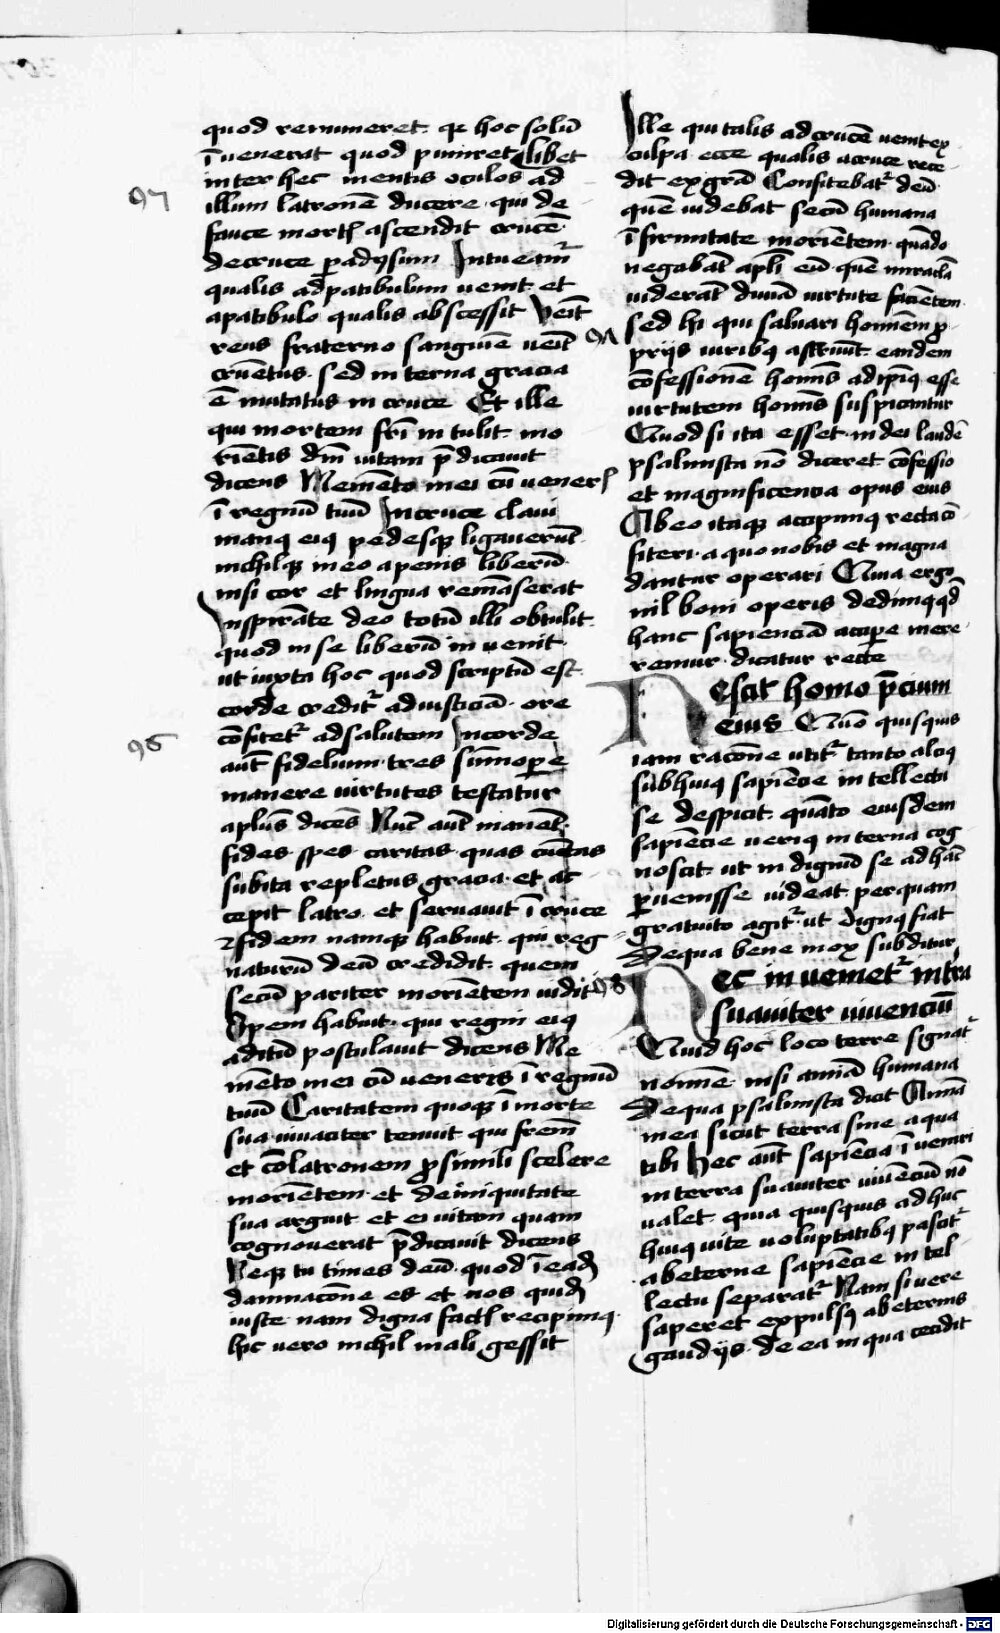 quod remuneret. qꝛ hoc solū
īuenerat quod puniret Libet
inter hec mentis oculos ad
97
illum latronē ducere. qui de
fauce mortꝭ ascendit crucē.
decruce ꝑadysum Intueamᷣ
qualis adpatibulum uenit. et
apatibulo qualis abscessit Venit
reus fraterno sanguīe uēit
cruētus. sed interna gracia
ē mutatus in cruce Et ille
qui mortem frī intulit. mo
riētis dnī uitam p̄dicauit
dicens Memēto mei cū uenerꝭ
ī regnū tuū Incruce claui
manꝰ eiꝰ pedesqꝫ ligauerūt.
nichilqꝫ ineo apenis liberū.
nisi cor et lingua remāserat
Inspirāte deo totū illi obtulit.
quod inse liberū inuenit.
ut iuxta hoc quod scriptū est
corde creditᷣ adiusticiā. ore
cōfitetᷣ adsalutem Incorde
96
aūt fidelium. tres sūmoꝑe
manere uirtutes testatur
aplūs dicēs Nūc aūt manēt.
fides. spes. caritas. quas cunctas
subita repletus gracia. et ac
cepit latro. et seruauit ī cruce
fidem namqꝫ habuit. qui reg
naturū deū credidit. quem
secū pariter moriētem uidit
Spem habuit. qui regni eiꝰ
aditū postulauit dicens Me
mēto mei cū ueneris ī regnū
tuū Caritatem quoqꝫ ī morte
sua uiuaciter tenuit qui frem̄
et cōlatronem ꝓsimili scelere
moriētem. et deiniquitate
sua arguit. et ei uitam quam
cognouerat p̄dicauit dicens
Neqꝫ tu times deū. quod ī eadꝫ
damnacōne es. et nos quidꝫ
iuste. nam digna factꝭ recipimꝰ.
hic uero nichil mali gessit
Ille qui talis adcrucē uenit ex
culpa. ecce qualis acruce rece
dit exgrā Confitebatᷣ deū.
quē uidebat secū humana
īfirmitate moriētem. quādo
negabāt apli eū. quē miracla
uiderāt diuina uirtute faciētem
sed hi qui saluari hominem ꝓ
prijs uiribꝰ astruūt. eandem
cōfessionē hominis adipiꝰ esse
uirtutem hominis suspicantur
Quod si ita esset. in dei laudē
psalmista nō diceret. cōfessio
et magnificencia opus eius
Abeo itaqꝫ accipimꝰ recta cō
fiteri. a quo nobis et magna
dantur operari Quia ergo
nil boni operis dedimꝰ qd̄
hanc sapienciā accipere mere
remur. dicatur recte
Nescit homo p̄cium
eius Quō quisquis
iam racōne utitᷣ tanto alciꝰ
subhuiꝰ sapiēcie intellectu
se despicit. quāto eiusdem
sapiēcie ueriꝰ interna cog
noscit. ut indignū se ad hāc
ꝑuenisse uideat. perquam
gratuito agitᷣ. ut dignꝰ fiat
Dequa bene mox subditur
98
Nec inuenietᷣ in trā
suauiter uiuenciū
Quid hoc loco terre signatᷣ
nomine. nisi animā humana
Dequa psalmista dicit Anima
mea sicut terra sine aqua
tibi Hec aūt sapiēcia īueniri
interra suauiter uiuēciū nō
ualet. quia quisquis adhuc
huiꝰ uite uoluptatibꝰ pascitᷣ
abeterne sapiēcie intel
lectu separatᷣ Nam si uere
saperet. expulsꝰ abeternis
gaudijs. de ea in qua cecidit